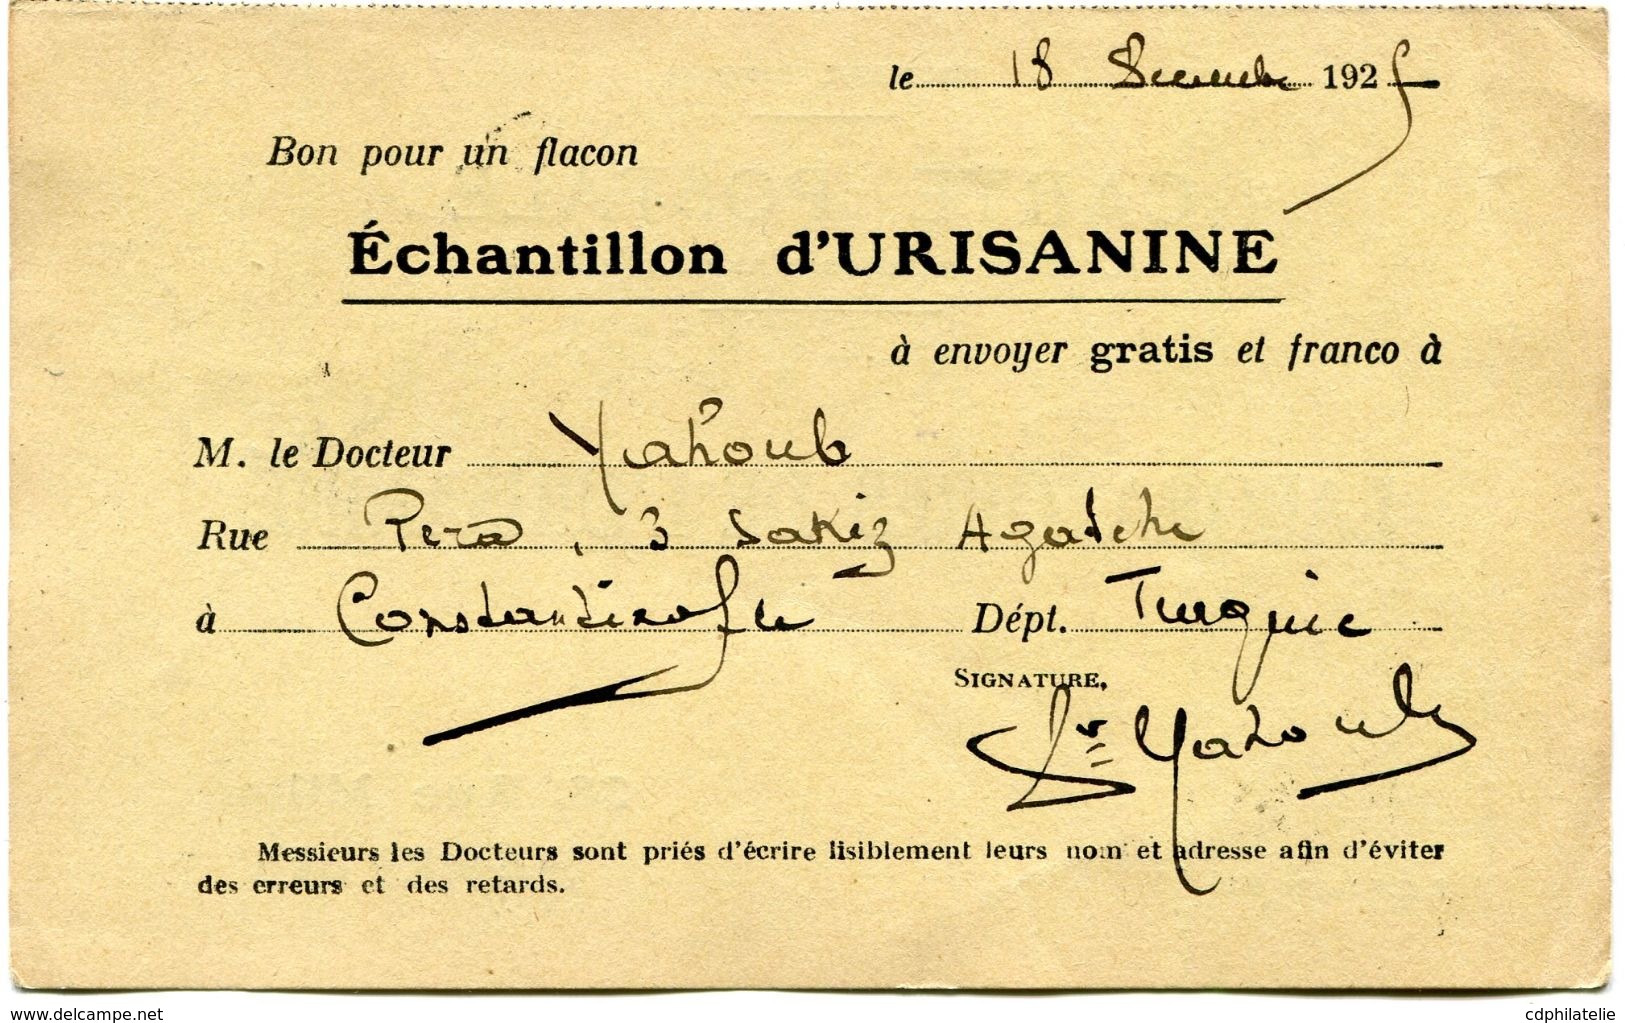 le 18 Decembre 1925
Bon pour un flacon
Échantillon d'URISANINE
à envoyer gratis et franco à
M. le Docteur Yahoub
Rue Pera, 3 Sakiz Agatche
à Constantinople Dépt. Turquie
SIGNATURE,
Dr Yahoub
Messieurs les Docteurs sont priés d'écrire lisiblement leurs nom et adresse afin d'éviter
des erreurs et des retards.
www.delcampe.net
cdphilatelie